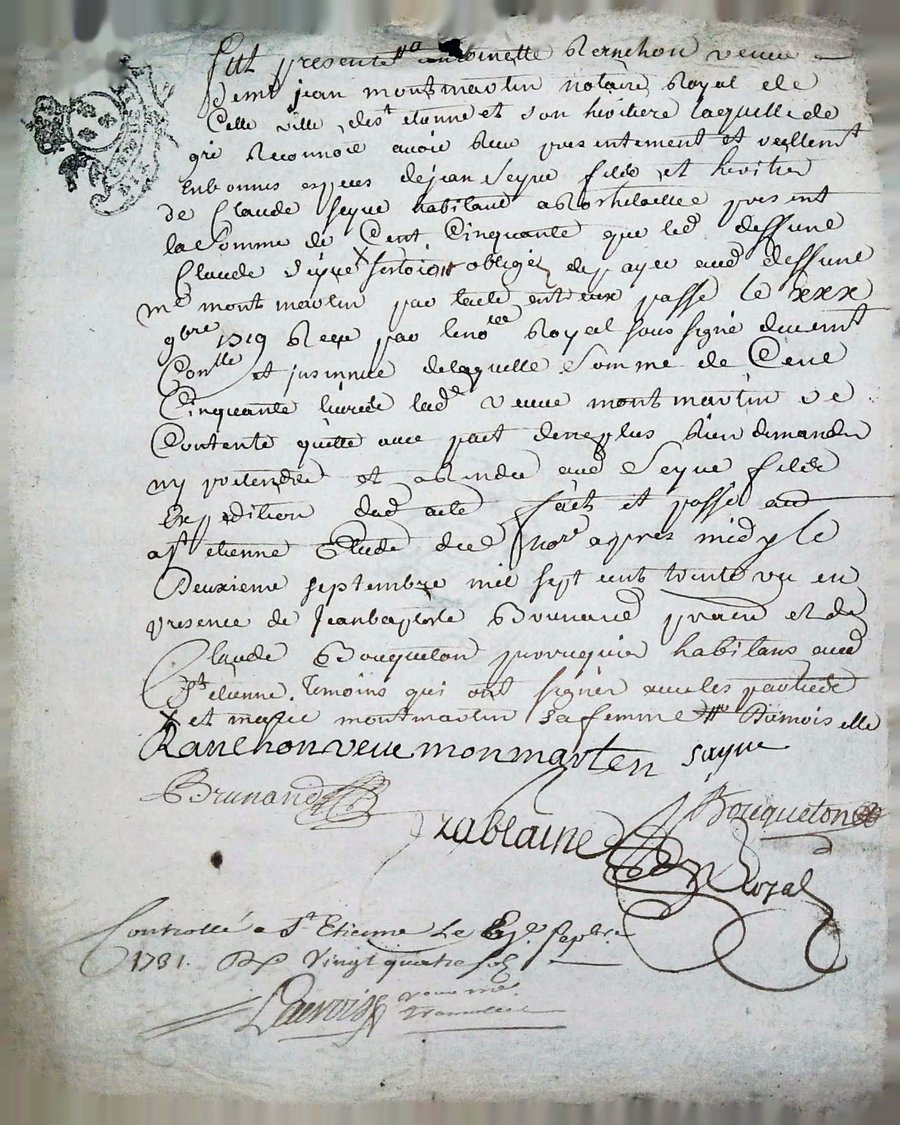 fut presente antoinette Ranchon veuve
Sieur jean montmartin notaire Royal de
Cette ville de st etienne et son heritiere laquelle de
gré Reconnoit avoir Receu presentement et reellemt
En bonnes especes de jean Seyve fils et heritier
de Claude Seyve habitant a present
la Somme de Cent Cinquante que led deffunt
Claude Seyve s'estoient obligez de payer aud deffunt
me montmartin par lacte entreux passé le xxx
9bre 1719 Receu par le nore Royal sous signé duement
Conllé et jnsinué de laquelle Somme de Cent
Cinquante livres lad veuve montmartin se
Contente quitte avec pact de ne plus Rien demander
ny pretendre et aud Seyve
Expedition dud acte fait et passé aud
a st etienne Etude dud nore apres midy le
Deuxieme septembre mil sept cent trente un en
presence de Jean baptiste Brunand et de
Claude Bouqueton perruquier habitans aud
St etienne. Temoins qui ont signer avec les parties
X et marie montmartin sa femme Damoiselle
Ranchon veuve monmarten sayve
Brunand Bouqueton
Tzablaine Royal
Controllé a St Etienne Le Sepbre
1731. Vingt quatre sols